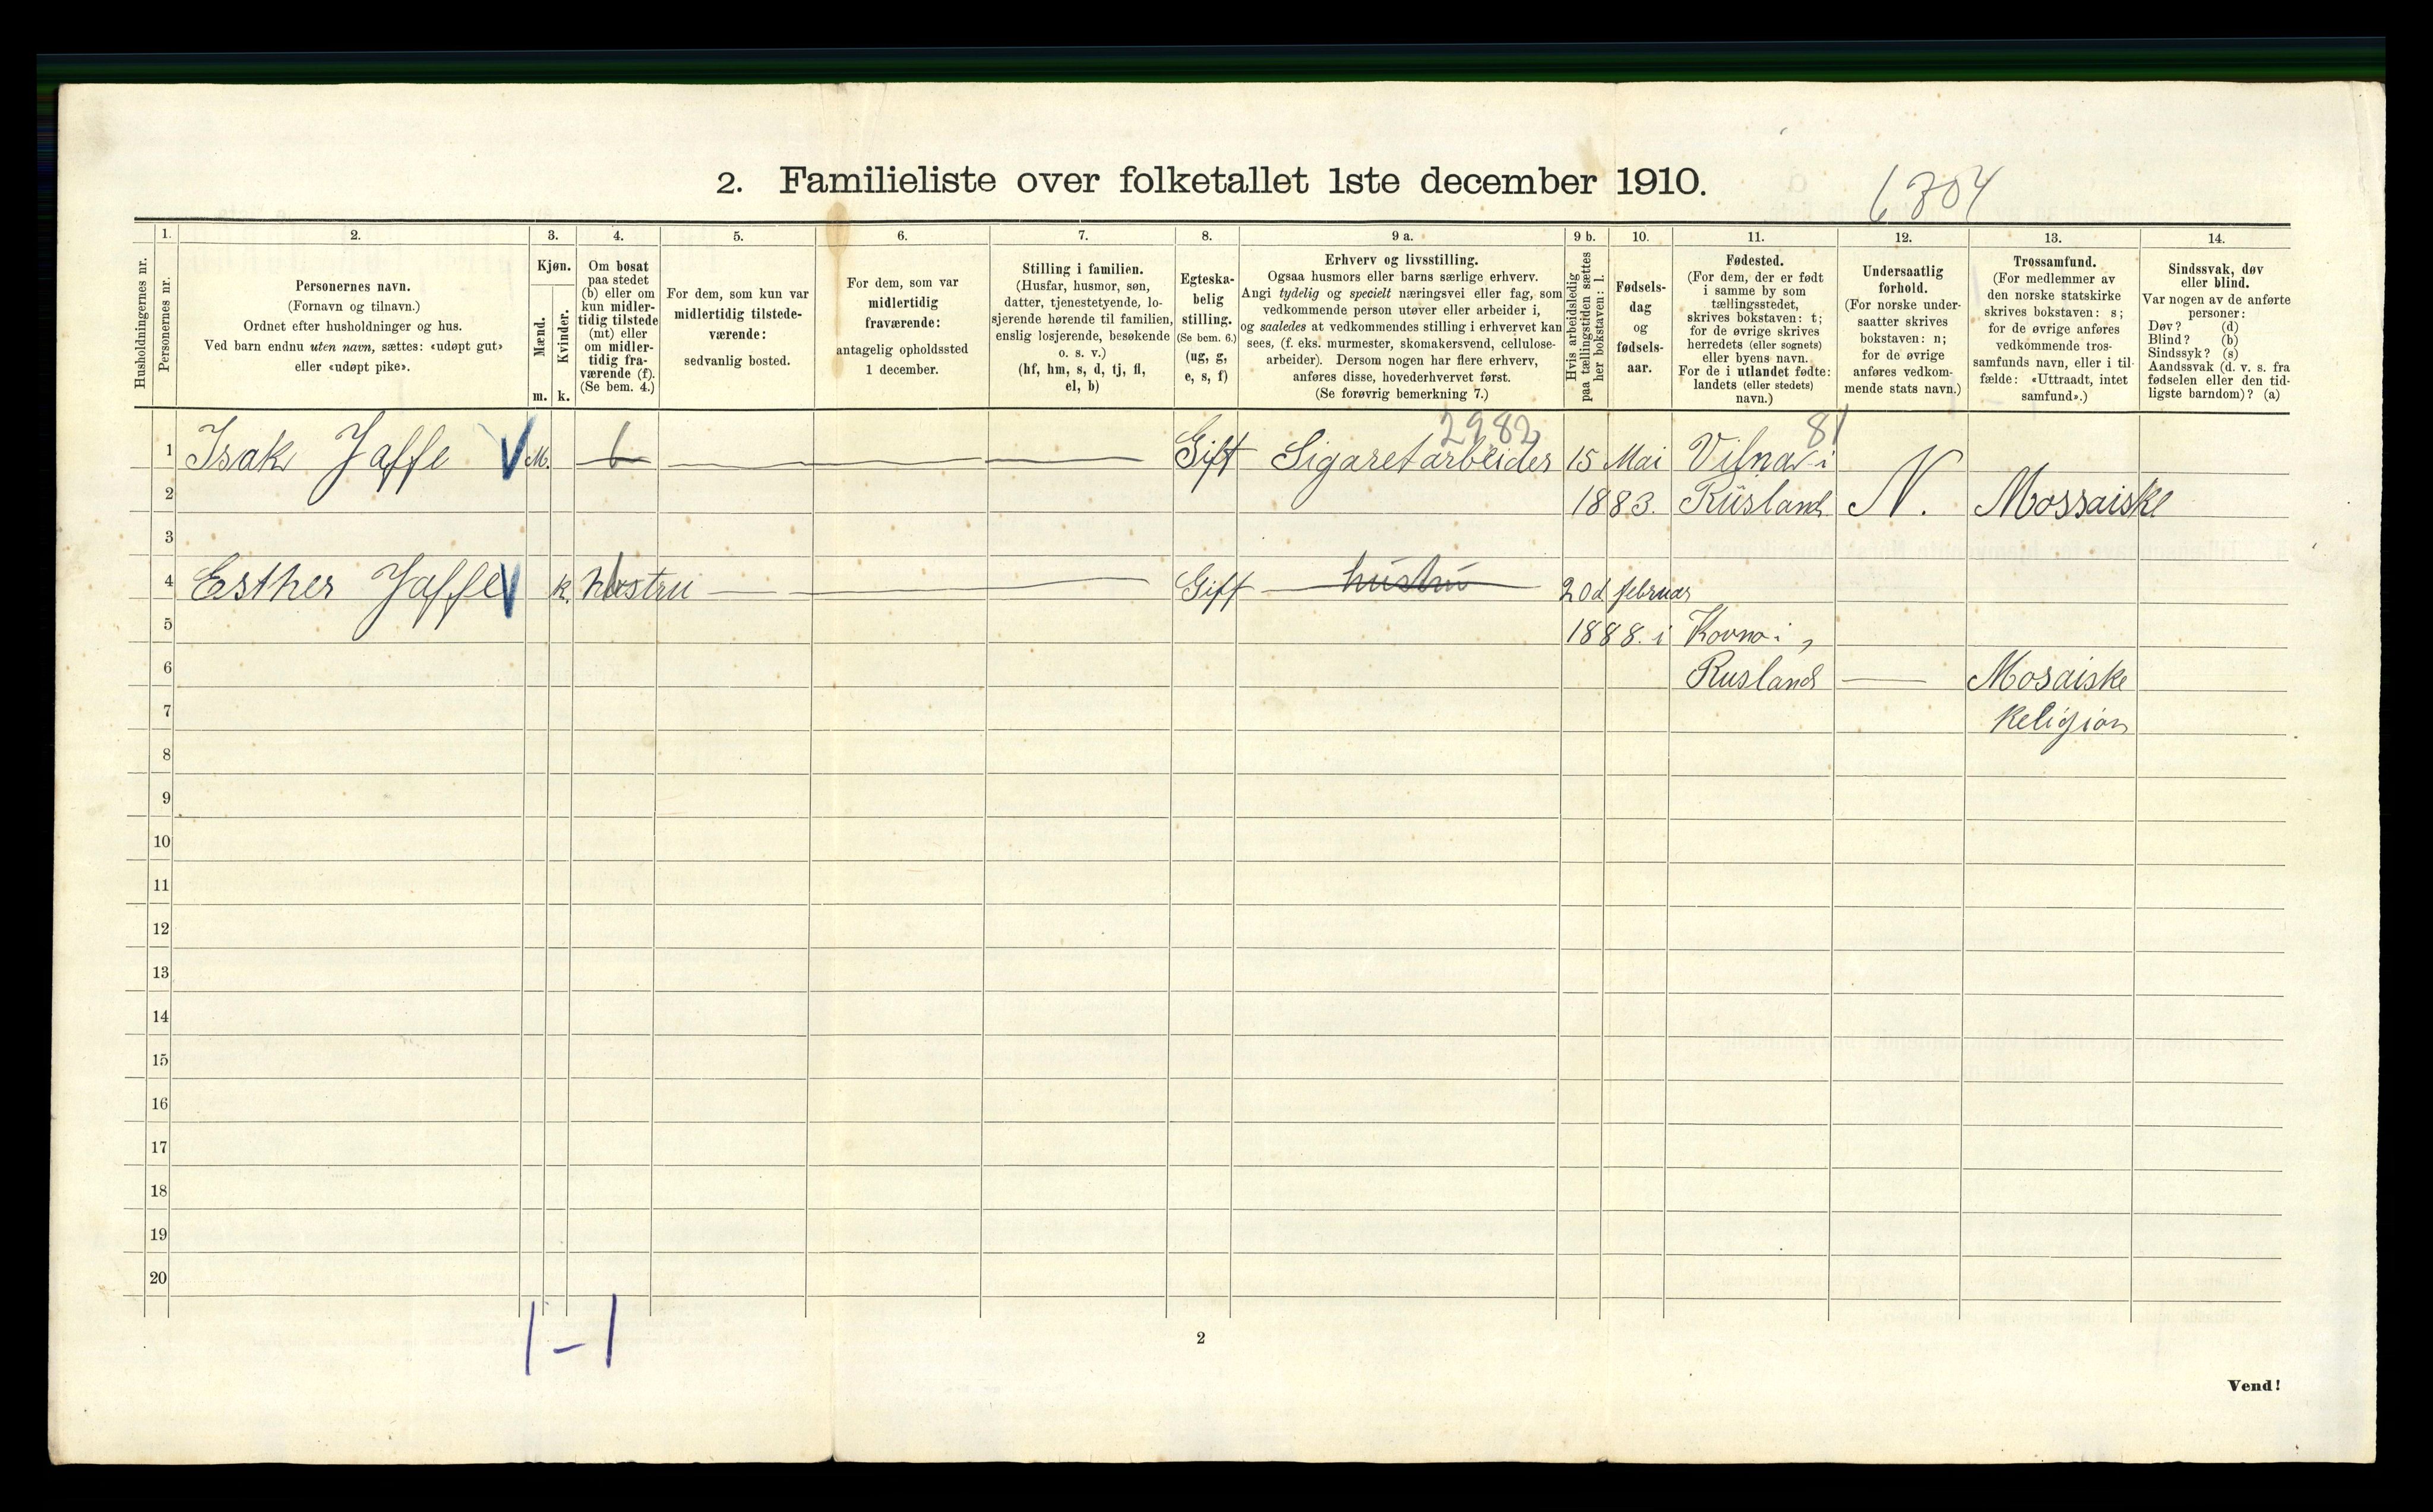 2. Familieliste over folketallet 1ste december 1910.
6804
Husholdningernes nr.
1.
Personernes nr.
2.
Personernes navn.
(Fornavn og tilnavn.)
Ordnet efter husholdninger og hus.
Ved barn endnu uten navn, sættes: «udøpt gut»
eller «udøpt pike».
3.
Kjøn.
Mænd.
Kvinder.
m. k.
4.
Om bosat
paa stedet
(b) eller om
kun midler-
tidig tilstede
(mt) eller
om midler-
tidig fra-
værende (f).
(Se bem. 4.)
5.
For dem, som kun var
midlertidig tilstede-
værende:
sedvanlig bosted.
6.
For dem, som var
midlertidig
fraværende:
antagelig opholdssted
1 december.
7.
Stilling i familien.
(Husfar, husmor, søn,
datter, tjenestetyende, lo-
sjerende hørende til familien,
enslig losjerende, besøkende
o. s. v.)
(hf, hm, s, d, tj, fl,
el, b)
8.
Egteska-
belig
stilling.
(Se bem. 6.)
(ug, g,
e, s, f)
9 a.
Erhverv og livsstilling.
Ogsaa husmors eller barns særlige erhverv.
Angi tydelig og specielt næringsvei eller fag, som
vedkommende person utøver eller arbeider i,
og saaledes at vedkommendes stilling i erhvervet kan
sees, (f. eks. murmester, skomakersvend, cellulose-
arbeider). Dersom nogen har flere erhverv,
anføres disse, hovederhvervet først.
(Se forøvrig bemerkning 7.)
9 b.
Hvis arbeidsledig
paa tællingstiden sættes
her bokstaven: l.
10.
Fødsels-
dag
og
fødsels-
aar.
11.
Fødested.
(For dem, der er født
i samme by som
tællingsstedet,
skrives bokstaven: t;
for de øvrige skrives
herredets (eller sognets)
eller byens navn.
For de i utlandet fødte:
landets (eller stedets)
navn.)
12.
Undersaatlig
forhold.
(For norske under-
saatter skrives
bokstaven: n;
for de øvrige
anføres vedkom-
mende stats navn.)
13.
Trossamfund.
(For medlemmer av
den norske statskirke
skrives bokstaven: s;
for de øvrige anføres
vedkommende tros-
samfunds navn, eller i til-
fælde: «Uttraadt, intet
samfund».)
14.
Sindssvak, døv
eller blind.
Var nogen av de anførte
personer:
Døv? (d)
Blind? (b)
Sindssyk? (s)
Aandssvak (d. v. s. fra
fødselen eller den tid-
ligste barndom)? (a)
2982 81
1 Isak Jaffe V M. b Gift Sigaretarbeider 15 Mai Vilna i
2 1883. Rüsland N. Mossaiske
3
4 Esther Jaffe V k. hustru b Gift hustru 20d februar
5 1888. i Kovno i
6 Rusland Mosaiske
7 Religion
8
9
10
11
12
13
14
15
16
17
18
19
20
1-1
2
Vend!